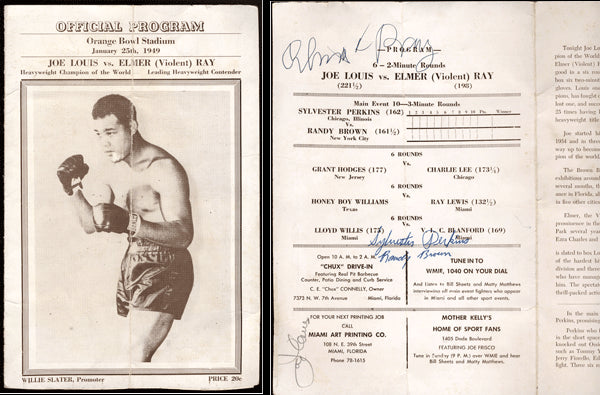 OFFICIAL PROGRAM
Orange Bowl Stadium
January 25th, 1949
JOE LOUIS vs. ELMER (Violent) RAY
Heavyweight Champion of the World Leading Heavyweight Contender
WILLIE SLATER, Promoter PRICE 20c
Elmer Ray
—PROGRAM—
6 – 2-Minute Rounds
JOE LOUIS vs. ELMER (Violent) RAY
(221½) (198)
Main Event 10—3-Minute Rounds
SYLVESTER PERKINS (162) 1 2 3 4 5 6 7 8 9 10 Pts. Winner
Chicago, Illinois
Vs.
RANDY BROWN (161½)
New York City
6 ROUNDS
Vs.
GRANT HODGES (177) CHARLIE LEE (173½)
New Jersey Chicago
6 ROUNDS
Vs.
HONEY BOY WILLIAMS RAY LEWIS (132½)
Texas Miami
6 ROUNDS
Vs.
LLOYD WILLIS (175) V. L. C. BLANFORD (169)
Miami Miami
Sylvester Perkins
Randy Brown
Open 10 A. M. to 2 A. M.
"CHUX" DRIVE-IN
Featuring Real Pit Barbecue
Counter, Patio Dining and Curb Service
C. E. "Chux" CONNELLY, Owner
7372 N. W. 7th Avenue Miami, Florida
TUNE IN TO
WMIE, 1040 ON YOUR DIAL
And Listen to Bill Sheets and Matty Matthews
interviewing off main event fighters who appear
in Miami and all other sport events.
FOR YOUR NEXT PRINTING JOB
CALL
MIAMI ART PRINTING CO.
108 N. E. 39th Street
MIAMI, FLORIDA
Phone 78-1615
MOTHER KELLY'S
HOME OF SPORT FANS
1405 Dade Boulevard
FEATURING JOE FRISCO
Tune in Tuesday (9 P. M.) over WMIE and hear
Bill Sheets and Matty Matthews
Tonight Joe Lo
Elmer (Violent)
good in a six rou
box six two-minut
gloves. Louis one
pions, has fought
lost one, and succe
25 times having
heavyweight title
Joe started hi
1934 and in three
way up to become
pion of the world.
The Brown B
exhibitions around
several months, th
ance in Florida, al
in five other cities
Elmer, the V
prominence in the
Park several year
Ezzard Charles and
is slated to box L
of the hardest hi
division and three
who have manage
him. The spectato
thrill-packed actio
In the main
Perkins, promising
Perkins who f
in the short space
knocked out Oniei
such as Tommy
Jean Fineello, Ed
fight. Three six m